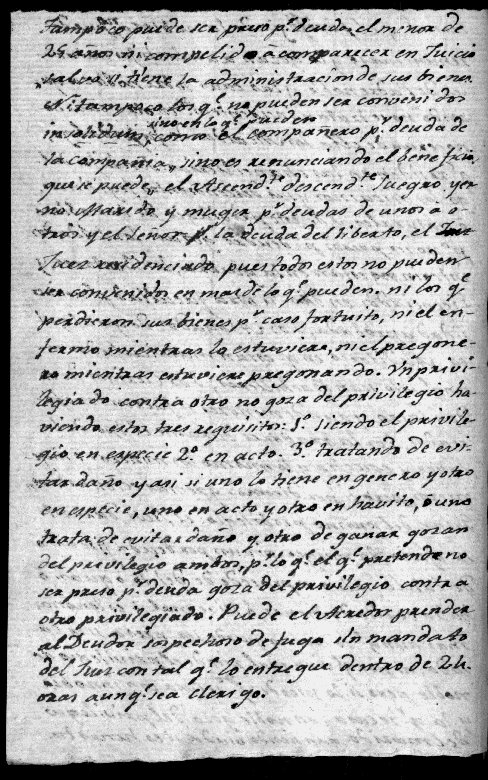 Tampoco puede ser preso p.r deudas el menor de
25 años ni compelido a comparecer en Juicio
salvo si tiene la administracion de sus bienes
Ni tampoco los q.e no pueden ser convenidos
sino en lo q.e pueden
insolidum, como el compañero p.r deuda de
la compañia, sino es renunciando el beneficio,
que se puede, el Ascend.te descend.te suegro yer-
no Marido y muger p.r deudas de unos a o-
tros y el señor p.r la deuda del liberto, el
Juez residenciado, pues todos estos no pueden
ser convenidos en mas de lo q.e pueden. ni los q.e
perdieron sus bienes p.r caso fortuito, ni el en-
fermo mientras lo estuviere, ni el pregone-
ro mientras estuviere pregonando. Un privi-
legiado contra otro no goza del privilegio ha-
viendo estos tres requisitos: 1.o siendo el privile-
gio en especie 2.o en acto. 3.o tratando de evi-
tar daño y asi si uno lo tiene en genero y otro
en especie, uno en acto y otro en havito, ō uno
trata de evitar daño y otro de ganar gozan
del privilegio ambos, p.r lo q.e el q.e pretende no
ser preso p.r deuda goza del privilegio contra
otro privilegiado. Puede el Acredor prender
al Deudor sospechoso de fuga sin mandato
del Juez con tal q.e lo entregue dentro de 24
oras aunq.e sea clerigo.